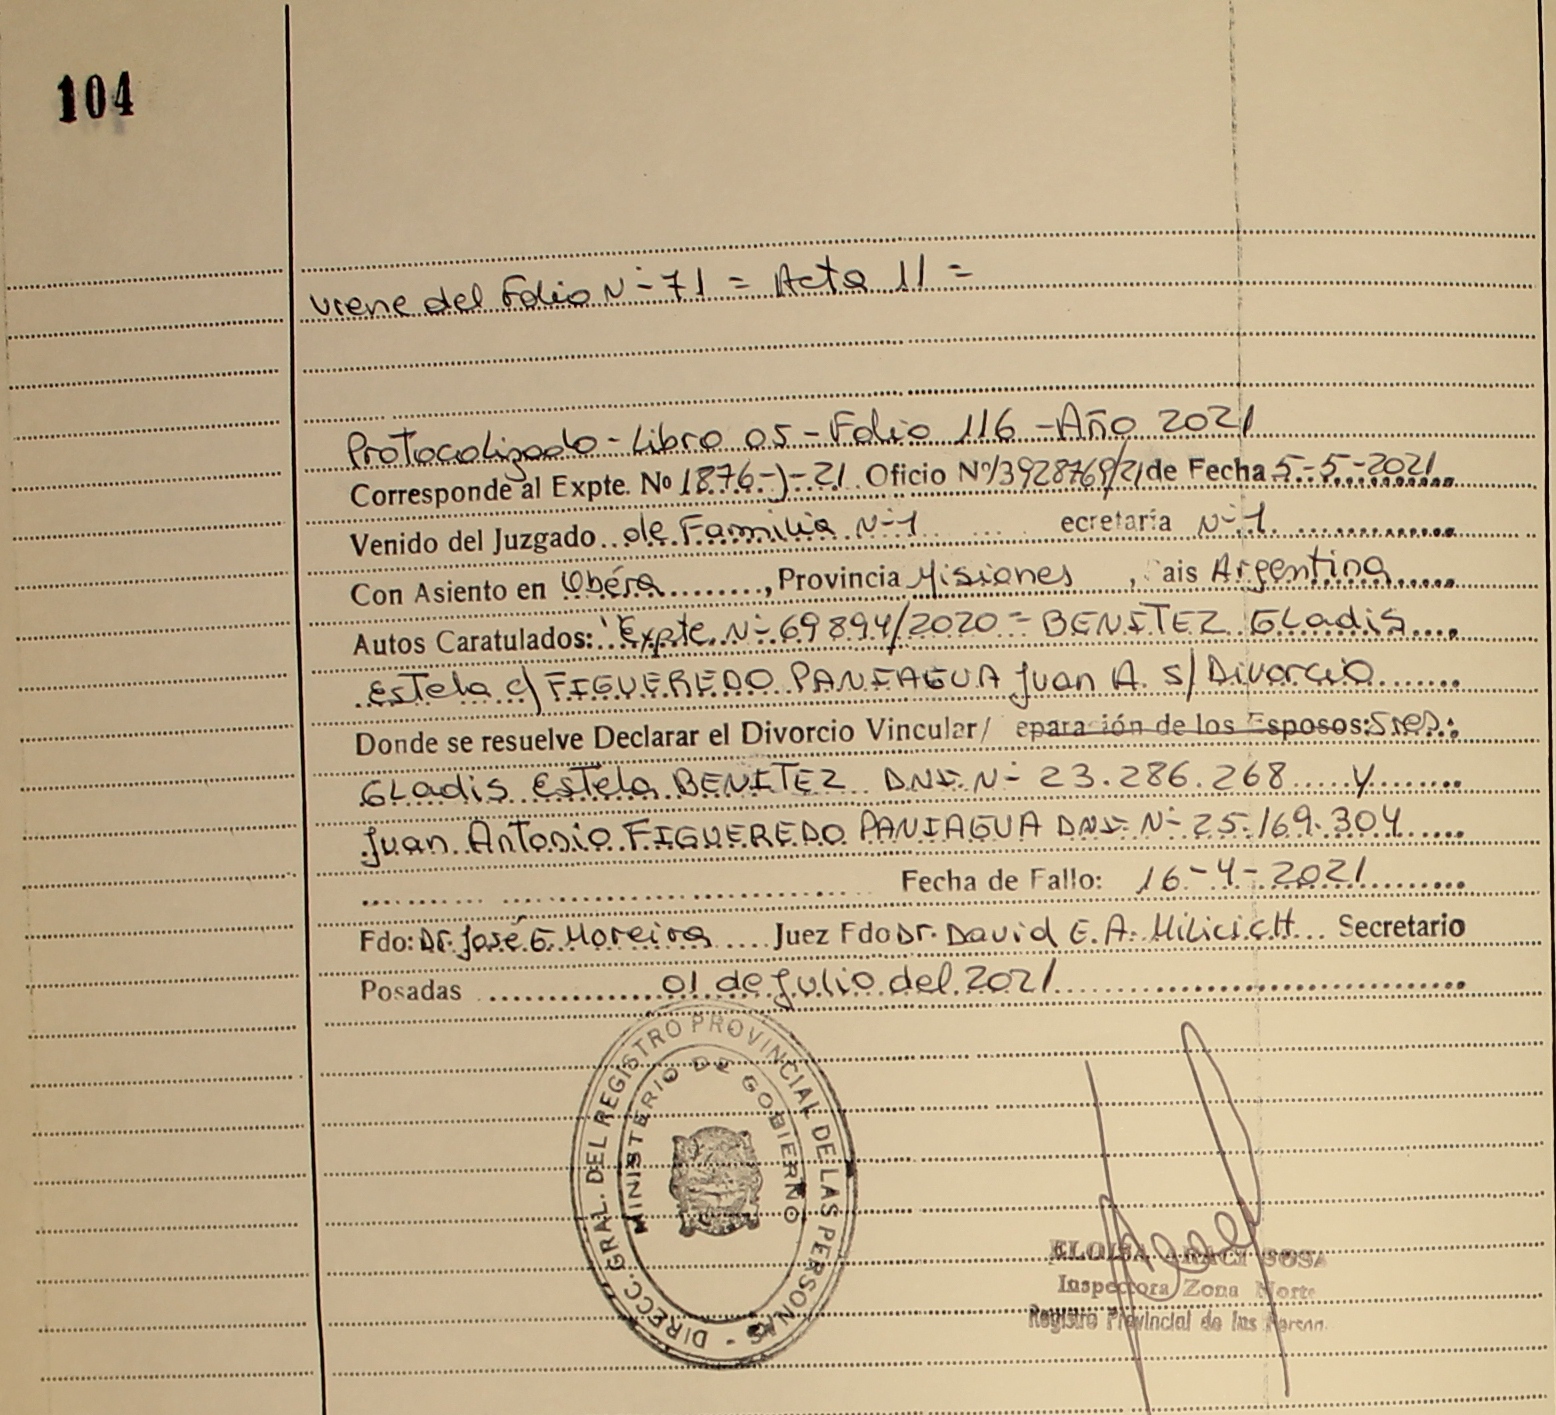 104
viene del Folio Nº 71 = Acta 11 =
Protocolizado - Libro 05 - Folio 116 - Año 2021
Corresponde al Expte. Nº 1876-J-21 Oficio Nº 13928769/21 de Fecha 5-5-2021
Venido del Juzgado de Familia Nº 1 ecretaría Nº 1
Con Asiento en Oberá, Provincia Misiones, ais Argentina
Autos Caratulados: "Expte. Nº 69894/2020 = BENITEZ Gladis
Estela c/ FIGUEREDO PANIAGUA Juan A. s/ Divorcio
Donde se resuelve Declarar el Divorcio Vincular/ eparación de los Esposos: Sres.:
Gladis Estela BENITEZ DNI. Nº 23.286.268 y
Juan Antonio FIGUEREDO PANIAGUA DNI Nº 25.169.304
Fecha de Fallo: 16-4-2021
Fdo: Dr. José G. Moreira Juez Fdo Dr. David E. A. MilicicH Secretario
Posadas 01 de Julio del 2021
DIRECC. GRAL. DEL REGISTRO PROVINCIAL DE LAS PERSONAS -
MINISTERIO DE GOBIERNO
ELOISA ARACI SOSA
Inspectora Zona Norte
Registro Provincial de las Person.